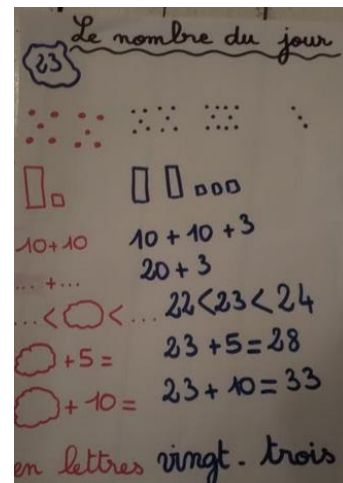 Le nombre du jour
23
10+10 10+10+3
...+... 20+3
...< <... 22<23<24
+5= 23+5=28
+10= 23+10=33
en lettres vingt-trois